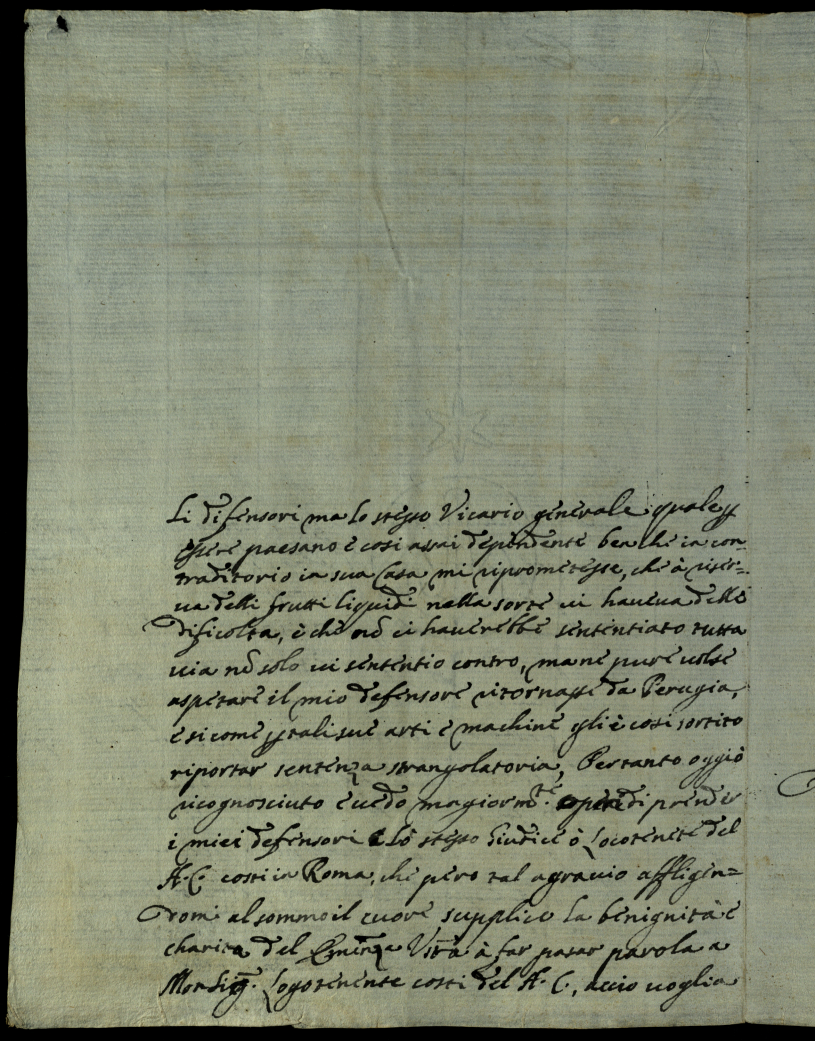 Li difensori ma lo stesso Vicario generale quale p
essere paesano e cosi assai dependente ben che in con=
traditorio in sua Casa mi riprometesse, che à riser=
ua delli frutti liquidi nella sorte ui haueua delle
dificolta, e che nõ ci hauerebbe sententiato tutta
uia nõ solo ui sententio contro, ma ne pure uolse
aspetare il mio defensore ritornasse da Perugia,
e si come p tali sue arti e machine gli è cosi sortito
riportar sentenza strangolatoria, Pertanto oggiò
ricognosciuto e uedo magiormte. di prender
i miei defensori lo stesso Giudice ò Locotenete del
A. C. costi in Roma, che pero tal agrauio affligen=
domi al sommo il cuore supplico la benignità e
charita del Eminenza Vrã à far pasar parola a
Monsig. Logotenente costi del A. C., accio uoglia